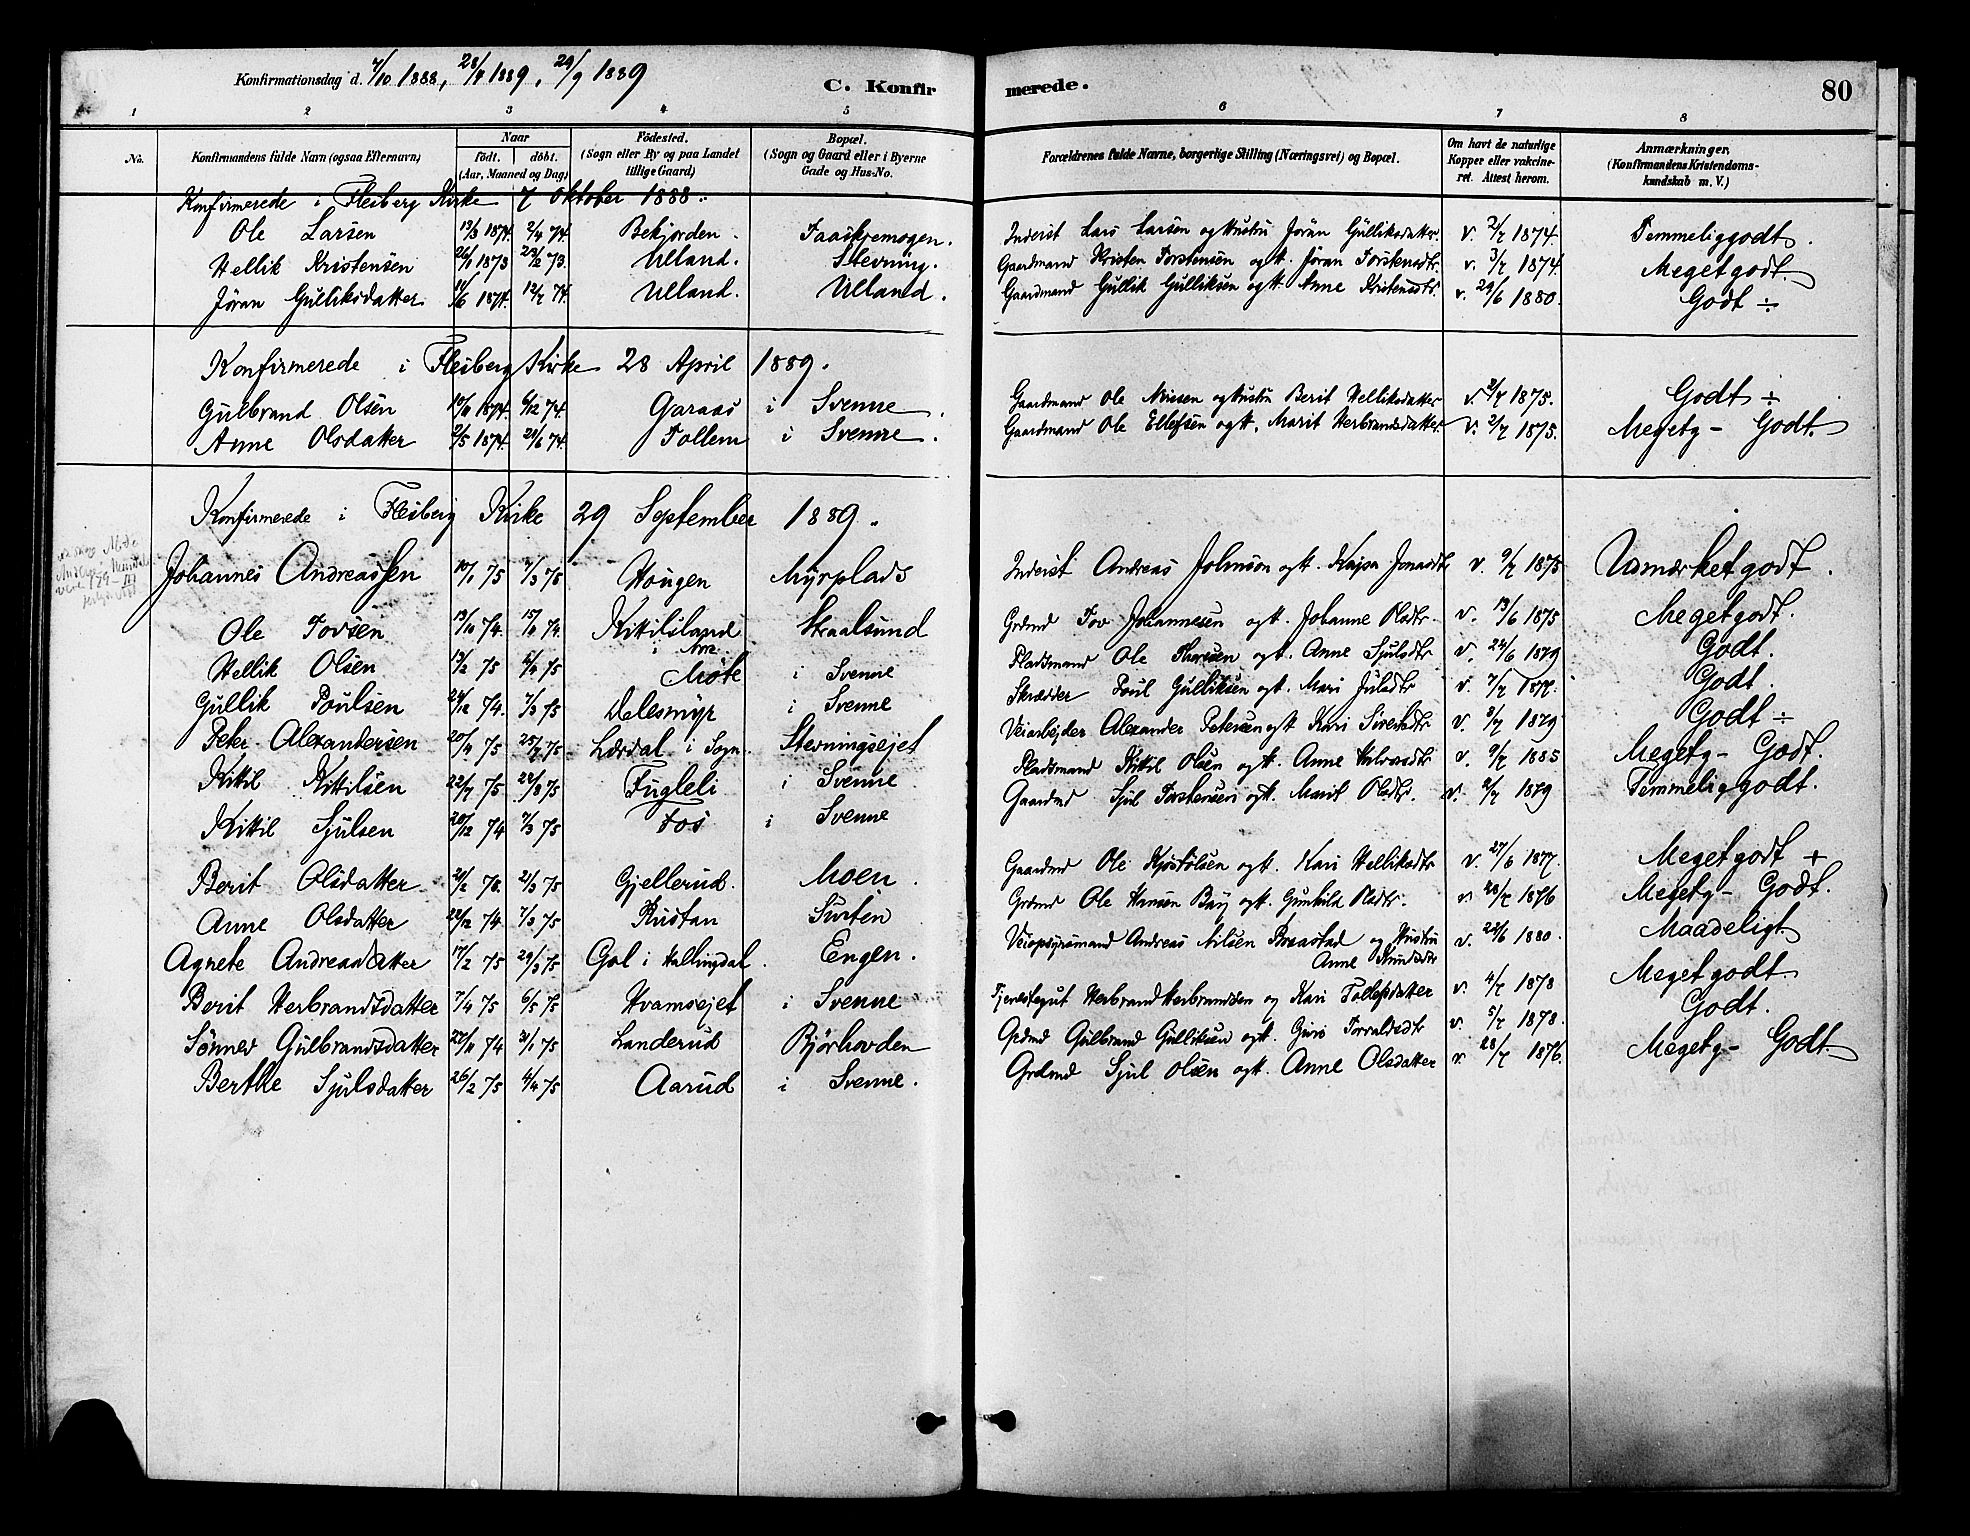 Konfirmationsdag d. 7/10 1888, 28/4 1889, 29/9 1889
C. Konfirmerede.
80
1 2 3 4 5 6 7 8
No. Konfirmandens fulde Navn (ogsaa Efternavn) Naar født. døbt. (Aar, Maaned og Dag) Fødested. (Sogn eller By og paa Landet tillige Gaard) Bopæl. (Sogn og Gaard eller i Byerne Gade og Hus-No. Forældrenes fulde Navne, borgerlige Stilling (Næringsvei) og Bopæl. Om havt de naturlige Kopper eller vakcineret. Attest herom. Anmærkninger, (Konfirmandens Kristendomskundskab m. V.)
Konfirmerede i Flesberg Kirke 7 Oktober 1888.
Ole Larsen 13/3 1874. 2/4 74. Bekjorden. Faaskjemogen. Inderst Lars Larsen og Hustru Jøran Gulliksdatter. v. 2/7 1874. Temmelig godt.
Hellik Kristensen 26/1 1873 23/2 73. Ulland. Stevning. Gaardmand Kristen Torstensen og H. Jøran Torstensdtr. v. 3/7 1874. Meget godt.
Jøran Gulliksdatter 11/6 1874. 12/7 74. Ulland. Ulland. Gaardmand Gullik Gulliksen og H. Anne Kristensdtr. v. 29/6 1880. Godt ÷
Konfirmerede i Flesberg Kirke 28 April 1889.
Gulbrand Olsen 10/11 1874. 6/12 74. Garaas i Svenne. Gaardmand Ole Nilsen og Hustru Berit Helliksdatter v. 2/7 1875. Godt ÷
Anne Olsdatter 2/5 1874. 21/6 74. Follem i Svenne. Gaardmand Ole Ellefsen og H. Marit Herbrandsdatter. v. 2/7 1875. Meget g - Godt.
Konfirmerede i Flesberg Kirke 29 September 1889.
Johannes Andreassen 10/1 75 7/3 75 Hougen Myrplads Inderst Andreas Johnson og H. Kajsa Jonasdtr v. 9/7 1875 Udmærket godt.
Ole Tovsen 13/10 74. 15/11 74. Kittilsland Skraalsund Grdmd Tov Johannesen og H. Johanne Olsdtr. v. 13/6 1875 Meget godt.
Hellik Olsen 13/2 75 4/4 75 Møte i Svenne Pladsmand Ole og H. Anne Sjulsdtr v. 24/6 1879 Godt.
Gullik Poulsen 24/12 74. 7/3 75 Dalesmyr i Svenne Skrædder Poul Gulliksen og H. Mari Julsdtr v. 7/7 1877. Godt.
Peter Alexandersen 20/4 75 25/7 75 Lærdal i Sogn. Stevningsejet Veiarbejder Alexander Petersen og H Kari Sivertsdtr v. 3/7 1879 Godt ÷
Kittil Kittilsen 22/7 75 29/8 75 Fugleli i Svenne Pladsmand Kittil Olsen og H. Anne Halvorsdtr v. 9/7 1885 Meget g - Godt.
Kittil Sjulsen 20/12 74 7/3 75 Fos i Svenne Gaardmd Sjul Torstensen og H. Marit Olsdtr. v. 2/7 1879 Temmelig godt.
Berit Olsdatter 21/2 75. 21/3 75 Gjellerud. Moen. Gaardmd Ole Kjøstolsen og H. Kari Helliksdtr v. 27/6 1877. Meget godt +
Anne Olsdatter 22/12 74 7/3 75 Rustan Surten Grdmd Ole Hansen Bay og H. Gunhild Olsdtr. v. 28/7 1876 Meget g - Godt.
Agnete Andreasdatter 17/2 75 29/3 75 Gol i Hallingdal. Engen. Veiopsynsmand Andreas Nilsen Braastad og Hustru Anne Knudsdtr v. 22/6 1880. Maadeligt
Berit Herbrandsdatter 7/4 75 6/5 75 Hvamsejet i Svenne Tjenestegut Herbrand Herbrandsen og Kari Tollefsdatter v. 4/7 1878 Meget godt
Sønnev Gulbrandsdatter 22/11 74 31/1 75 Landerud Bjørhovden Grdmd Gulbrand Gulliksen og H. Guri Torvaldsdtr v. 5/7 1878. Godt.
Berthe Sjulsdatter 26/2 75 4/4 75 Aarud i Svenne. Grdmd Sjul Olsen og H. Anne Olsdatter v. 28/7 1876. Meget g - Godt.